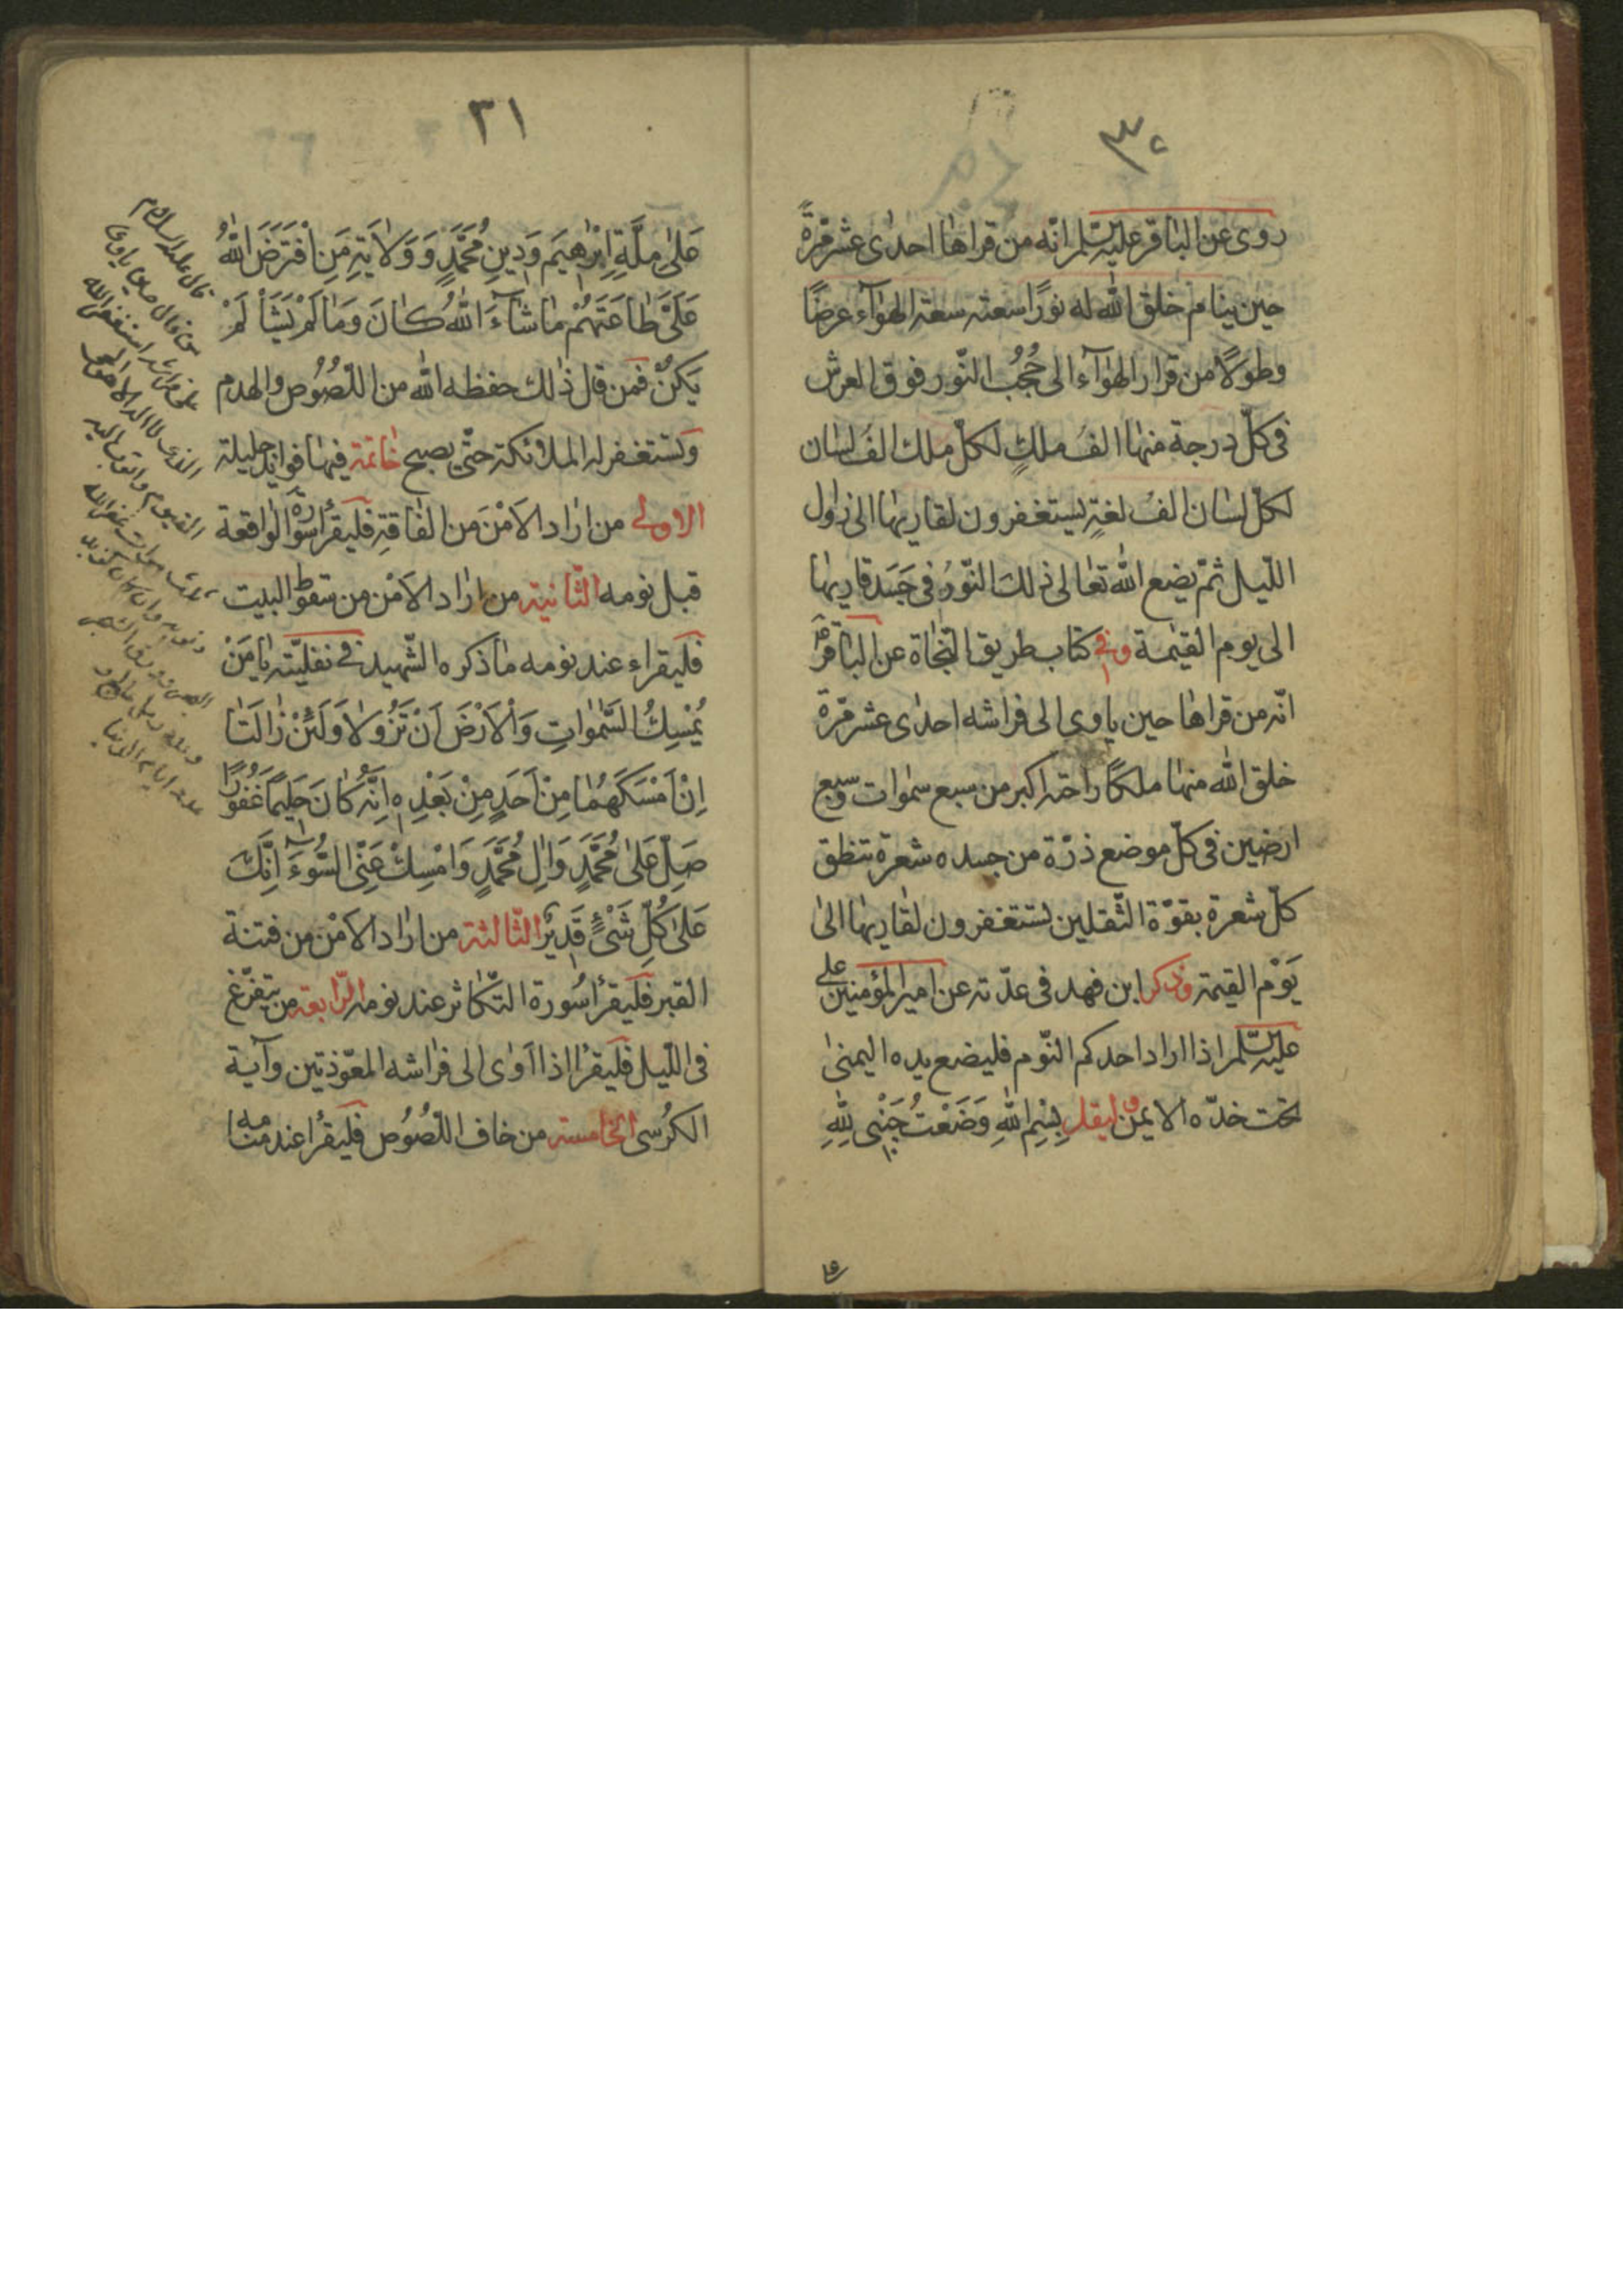 ٣٠
روى عن الباقر عليه السّلم انّه من قراها احدى عشر مرّةً
حين ينام خلق الله له نورًا سعته سعة الهوٰآء عرضًا
وطولًا من قرار الهوٰآء الى حُجُب النّور فوق العرش
فى كلّ درجة منها الف ملكٍ لكلّ ملك الف لسان
لكلّ لسان الف لغةٍ يستغفرون لقاريها الى زوال
اللّيل ثمّ يضع الله تعالى ذلك النّورُ فى جَسَد قاريها
الى يوم القيٰمة وفى كتاب طريق النّجاة عن الباقر
انّه من قراها حين ياوى الى فراشه احدى عشر مرّة
خلق الله منها ملكًا راحته اكبر من سبع سمٰوات وسبع
ارضين فى كلّ موضع ذرّة من جسده شعرة تنطق
كلّ شعرة بقوّة الثّقلين يستغفرون لقاريها الىٰ
يَوْم القيٰمة وذكر ابن فهد فى عدّته عن امير المؤمنين على
عليه السّلم اذا اراد احدكم النّوم فليضع يده اليمنىٰ
تحت خدّه الايمن وليقل بِسْمِ اللهِ وَضَعْتُ جَنْبى لِلّٰهِ
٣١
عَلىٰ مِلَّةِ اِبْرٰهيمَ وَدِينِ مُحَمَّدٍ وَوَلٰايَةِ مَنِ افْتَرَضَ اللهُ
عَلَىَّ طٰاعَتَهُمْ مٰا شٰآءَ اللهُ كٰانَ وَمٰا لَمْ يَشَأْ لَمْ
يَكُنْ فمن قال ذٰلك حفظه الله من اللّصُوُص والهدم
وتستغفر له الملائكة حتّى يصبح خاتمة فيها فوايد جليلة
الاولى من اراد الامْنَ من الفاقةِ فليقرأ سورة الواقعة
قبل نومه الثّانية من اراد الامْن من سقوط البيت
فليقراء عند نومه ما ذكره الشّهيد فى نفليّته يٰا مَنْ
يُمْسِكُ السَّمٰوٰاتِ وَالْاَرْضَ اَنْ تَزُوٰلا وَلَئِنْ زٰالَتٰا
اِنْ اَمْسَكَهُمٰا مِنْ اَحَدٍ مِنْ بَعْدِهِ اِنَّهُ كٰانَ حَليمًا غَفُورًا
صَلِّ عَلىٰ مُحَمَّدٍ وَاٰلِ مُحَمَّدٍ وَامْسِكْ عَنّى السُّوءَ اِنَّكَ
عَلىٰ كُلِّ شَىْءٍ قَديرٌ الثّالثة من اراد الامْن من فتنة
القبر فليقرأ سُورة التّكاثر عند نومه الرّابعة من يتفزّع
فى اللّيل فليقرأ اذا اوٰى الى فراشه المعوّذتين وآية
الكرُسى الخامسة من خاف اللّصُوُص فليقرأ عند منامه
قال عليه السلام
من قال حين ياوى
الى فراشه استغفر الله
الذى لا اله الا هو الحى
القيوم واتوب اليه
ثلاث مرات غفر الله
ذنوبه وان كانت كزبد